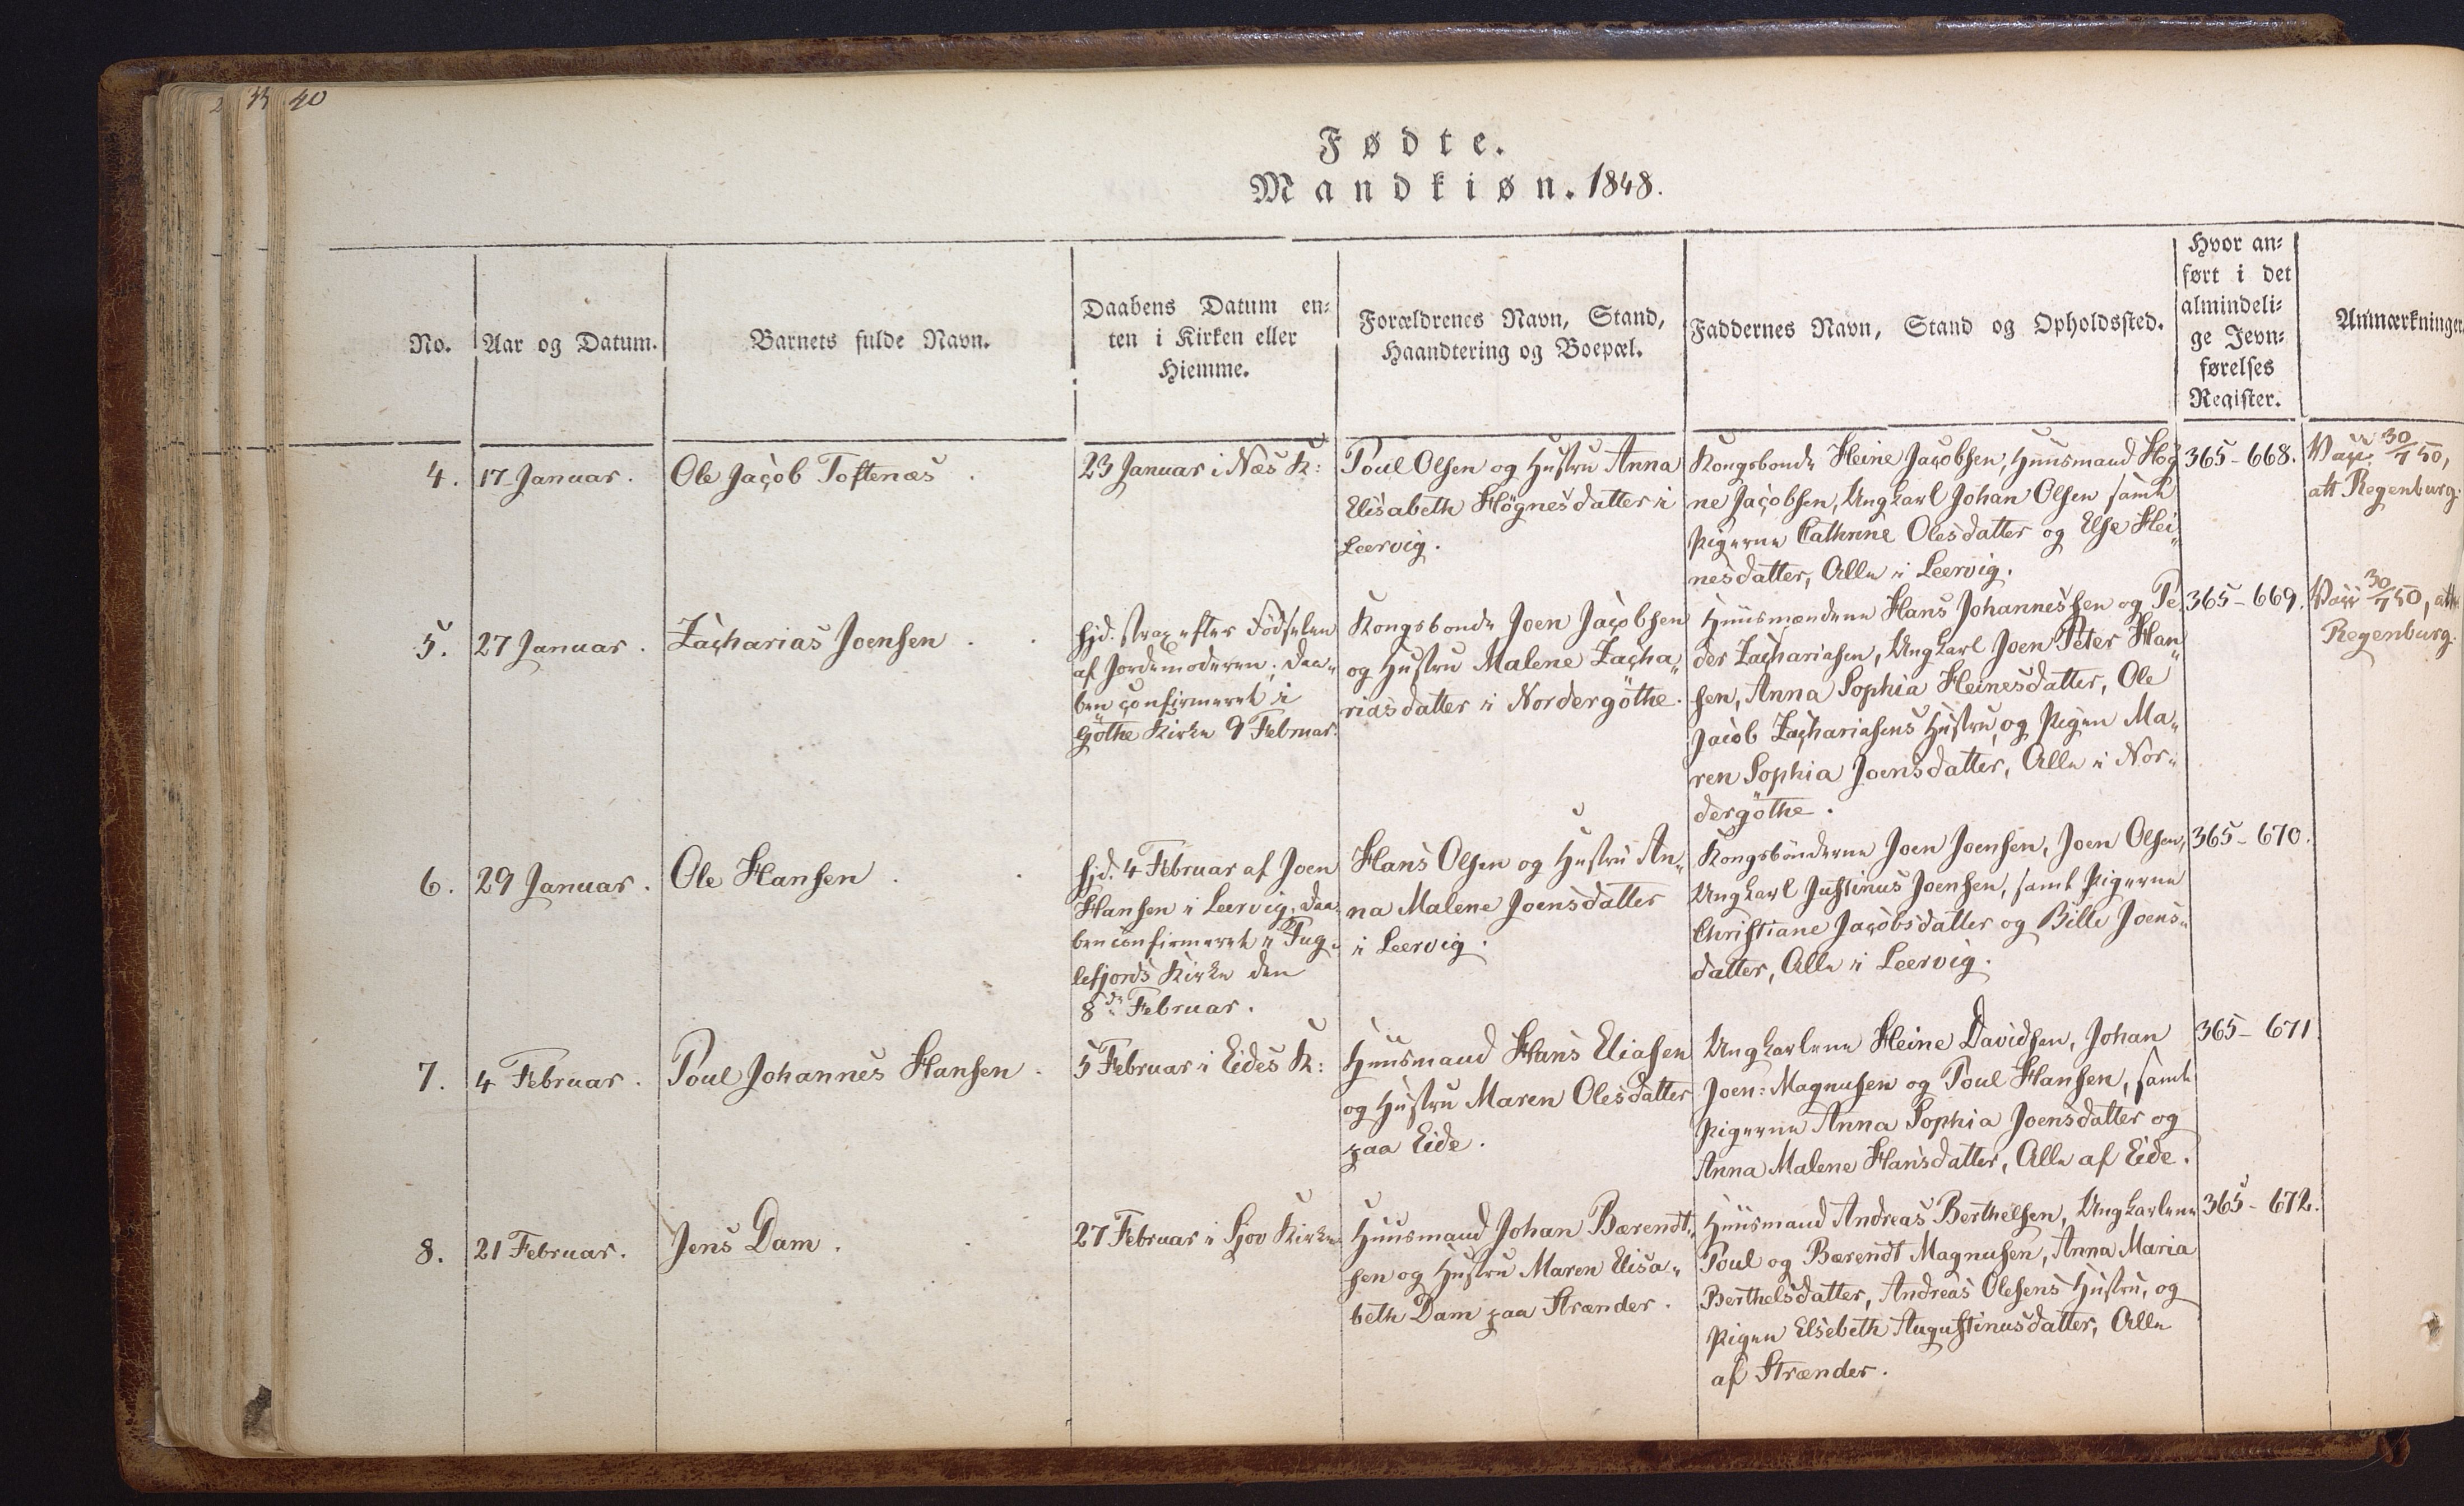 40
Fødte.
Mandkiøn. 1848.
No.
Aar og Datum.
Barnets fulde Navn.
Daabens Datum en-
ten i Kirken eller
Hiemme.
Forældrenes Navn, Stand,
Haandtering og Boepæl.
Faddernes Navn, Stand og Opholdssted.
Hvor an-
ført i det
almindeli-
ge Jevn-
førelses
Register.
Anmærkninger.
4.
17 Januar.
Ole Jacob Toftenæs
23 Januar i Næs K:
Poul Olsen og Hustru Anna
Elisabeth Högnesdatter i
Leervig.
Kongsbonde Heine Jacobsen, Huusmand Hög
ne Jacobsen, Ungkarl Johan Olsen samt
Pigerne Cathrine Olesdatter og Else Hei
nesdatter, Alle i Leervig.
365-668.
Vacc. 30/7 50,
att Regenburg.
5.
27 Januar.
Zacharias Joensen
hjd. strax efter Födselen
af Jordemoderen, Daa-
ben confirmeret i
Göthe Kirke 9 Februar.
Kongsbonde Joen Jacobsen
og Hustru Malene Zacha-
riasdatter i Nordergöthe.
Huusmændene Hans Johannessen og Pe
der Zachariasen, Ungkarl Joen Peter Han
sen, Anna Sophia Heinesdatter, Ole
Jacob Zachariasens Hustru, og Pigen Ma-
ren Sophia Joensdatter, Alle i Nor-
dergöthe.
365-669.
Vacc 30/7 50, att
Regenburg.
6.
29 Januar.
Ole Hansen
hjd. 4 Februar af Joen
Hansen i Leervig, Daa-
ben confirmeret i Fug-
lefjords Kirke den
8de Februar.
Hans Olsen og Hustru An-
na Malene Joensdatter
i Leervig.
Kongsbönderne Joen Joensen, Joen Olsen,
Ungkarl Justinus Joensen, samt Pigerne
Christiane Jacobsdatter og Bille Joens-
datter, Alle i Leervig.
365-670.
7.
4 Februar.
Poul Johannes Hansen
5 Februar i Eides K:
Huusmand Hans Eliasen
og Hustru Maren Olesdatter
paa Eide.
Ungkarlene Heine Davidsen, Johan
Joen: Magnusen og Poul Hansen, samt
Pigerne Anna Sophia Joensdatter og
Anna Malene Hansdatter, Alle af Eide.
365-671
8.
21 Februar.
Jens Dam.
27 Februar i Sjov Kirke
Huusmand Johan Bærendt-
sen og Hustru Maren Elisa-
beth Dam paa Strænder.
Huusmand Andreas Berthelsen, Ungkarlene
Poul og Bærendt Magnusen, Anna Maria
Berthelsdatter, Andreas Olesens Hustru, og
Pigen Elsebeth Augustinusdatter, Alle
af Strænder.
365-672.